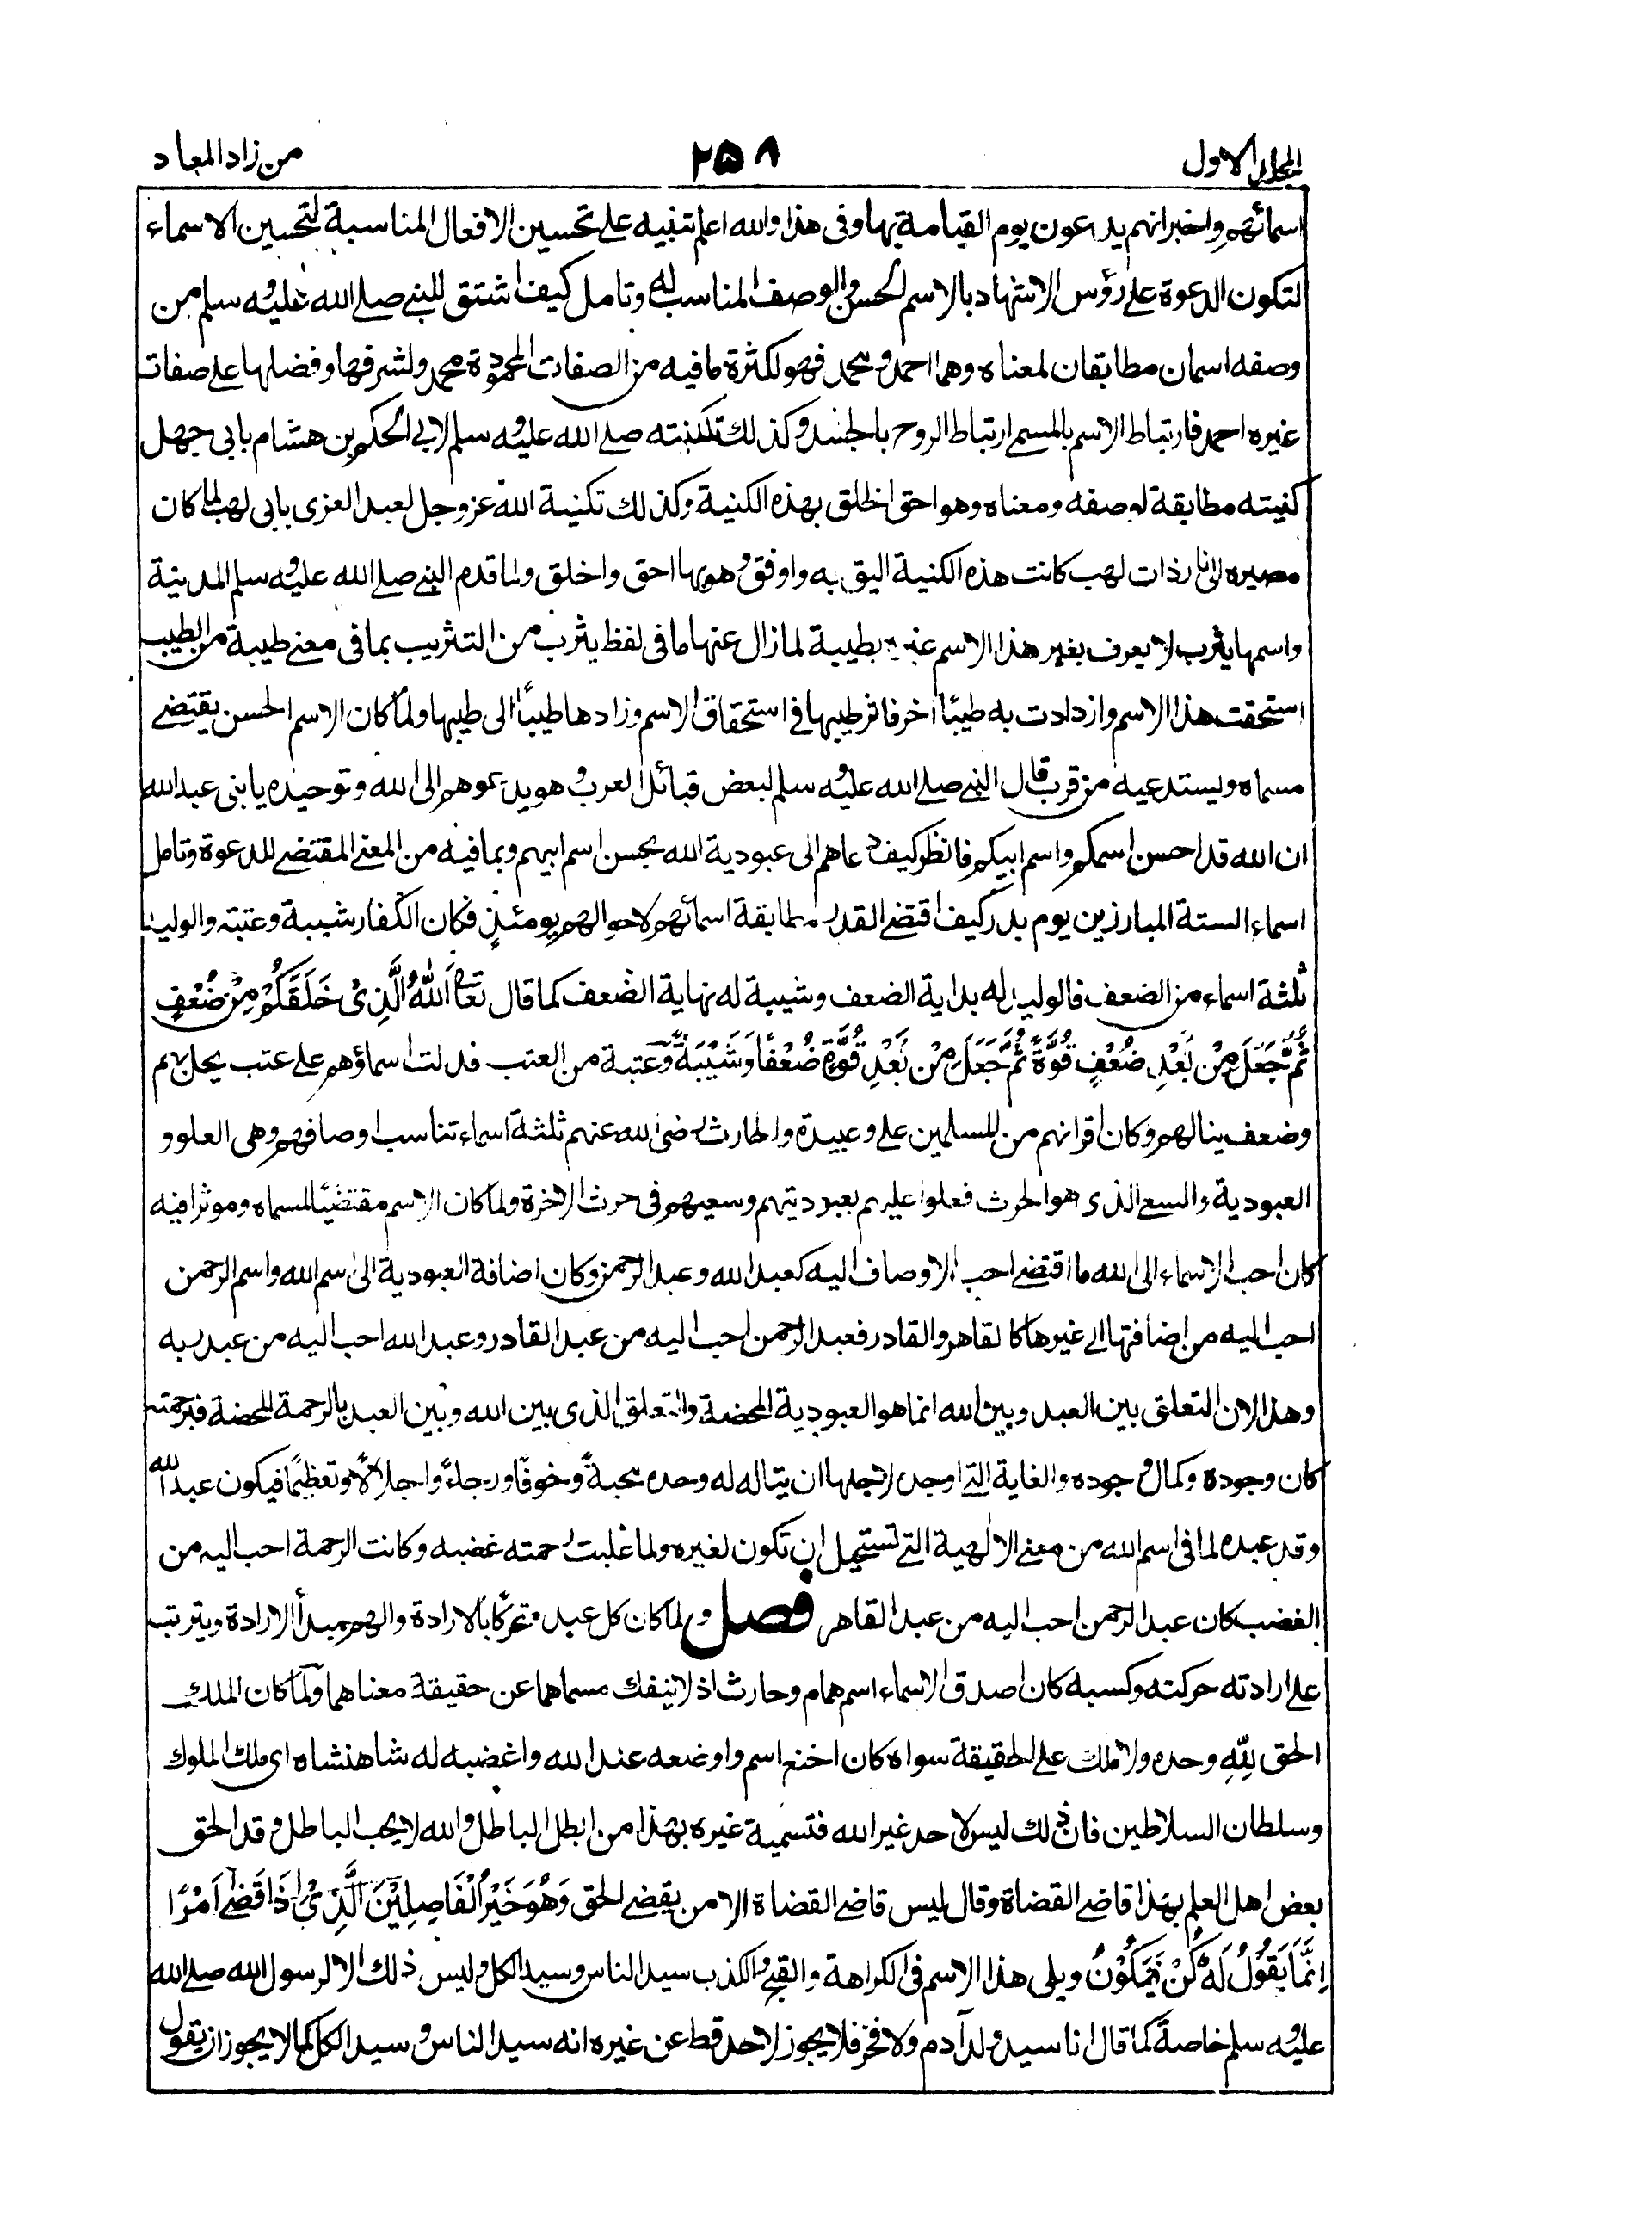 المجلد الاول
٢٥٨
من زاد المعاد
اسمائهم واخبر انهم يدعون يوم القيامة بها وفى هذا والله اعلم تنبيه على تحسين الافعال المناسبة لتحسين الاسماء
لتكون الدعوة على رؤس الاشهاد بالاسم الحسن والوصف المناسب له وتامل كيف اشتق للنبي صلے الله عليه وسلم من
وصفه اسمان مطابقان لمعناه وهما احمد ومحمد فهو لكثرة مافيه من الصفات المحمودة محمد ولشرفها وفضلها على صفات
غيره احمد فارتباط الاسم بالمسمے ارتباط الروح بالجسد وكذلك تكنيته صلے الله عليه وسلم لابى الحكم بن هشام بابى جهل
كنيته مطابقة لوصفه ومعناه وهو احق الخلق بهذه الكنية وكذلك تكنية الله عز وجل لعبد العزى بابى لهب لما كان
مصيره الى نار ذات لهب كانت هذه الكنية اليق به واوفق وهو بها احق واخلق ولما قدم النبي صلے الله عليه وسلم المدينة
واسمها يثرب لا يعرف بغير هذا الاسم غيره بطيبة لما زال عنها مافى لفظ يثرب من التثريب بما فى معنے طيبة من الطيب
استحقت هذا الاسم وازدادت به طيبًا اخر فاثر طيبها فى استحقاق الاسم وزادها طيبًا الى طيبها ولما كان الاسم الحسن يقتضے
مسماه ويستدعيه من قرب قال النبي صلے الله عليه وسلم لبعض قبائل العرب وهو يدعوهم الى الله وتوحيده يا بنى عبد الله
ان الله قد احسن اسمكم واسم ابيكم فانظر كيف دعاهم الى عبودية الله بحسن اسم ابيهم وبما فيه من المعنے المقتضے للدعوة وتامل
اسماء الستة المبارزين يوم بدر كيف اقتضے القدر مطابقة اسمائهم لاحوالهم يومئذٍ فكان الكفار شيبة وعتبة والوليد
ثلثة اسماء من الضعف فالوليد له بداية الضعف وشيبة له نهاية الضعف كما قال تعالى اَللّٰهُ الَّذِىْ خَلَقَكُمْ مِنْ ضُعْفٍ
ثُمَّ جَعَلَ مِنْ بَعْدِ ضُعْفٍ قُوَّةً ثُمَّ جَعَلَ مِنْ بَعْدِ قُوَّةٍ ضُعْفًا وَشَيْبَةً وعتبة من العتب فدلت اسماؤهم على عتب يحل بهم
وضعف ينالهم وكان اقرانهم من المسلمين على وعبيدة والحارث رضى الله عنهم ثلثة اسماء تناسب اوصافهم وهى العلو و
العبودية والسعے الذى هو الحرث فعلوا عليهم بعبوديتهم وسعيهم فى حرث الاخرة ولما كان الاسم مقتضيًا لمسماه وموثرا فيه
كان احب الاسماء الى الله ما اقتضے احب الاوصاف اليه كعبد الله وعبد الرحمن وكان اضافة العبودية الى اسم الله واسم الرحمن
احب اليه من اضافتها الى غيرها كالقاهر والقادر فعبد الرحمن احب اليه من عبد القادر وعبد الله احب اليه من عبد ربه
وهذا لان التعلق بين العبد وبين الله انما هو العبودية المحضة والتعلق الذى بين الله وبين العبد بالرحمة المحضة فبرحمته
كان وجوده وكمال وجوده والغاية التى اوجد لاجلها ان يتاله له وحده محبةً وخوفًا ورجاءً واجلالًا وتعظيمًا فيكون عبدا لله
وقد عبده لما فى اسم الله من معنے الالٰهية التى تستحيل ان تكون لغيره ولما غلبت رحمته غضبه وكانت الرحمة احب اليه من
الغضب كان عبد الرحمن احب اليه من عبد القاهر فصل ولما كان كل عبد متحركا بالارادة والهم مبدأ الارادة ويترتب
على ارادته حركته وكسبه كان اصدق الاسماء اسم همام وحارث اذ لا ينفك مسماهما عن حقيقة معناهما ولما كان الملك
الحق لِلّٰهِ وحده ولا ملك على الحقيقة سواه كان اخنع اسم واوضعه عند الله واغضبه له شاهنشاه اى ملك الملوك
وسلطان السلاطين فان ذلك ليس لاحد غير الله فتسمية غيره بهذا من ابطل الباطل والله لا يحب الباطل وقد الحق
بعض اهل العلم بهذا قاضے القضاة وقال ليس قاضے القضاة الا من يقضے الحق وَهُوَ خَيْرُ الْفَاصِلِيْنَ الَّذِىْ اِذَا قَضٰے اَمْرًا
اِنَّمَا يَقُوْلُ لَهٗ كُنْ فَيَكُوْنُ ويلى هذا الاسم فى الكراهة والقبح والكذب سيد الناس وسيد الكل وليس ذلك الا لرسول الله صلے الله
عليه وسلم خاصةً كما قال انا سيد ولد آدم ولا فخر فلا يجوز لاحد قط عن غيره انه سيد الناس وسيد الكل كما لا يجوز ان يقول